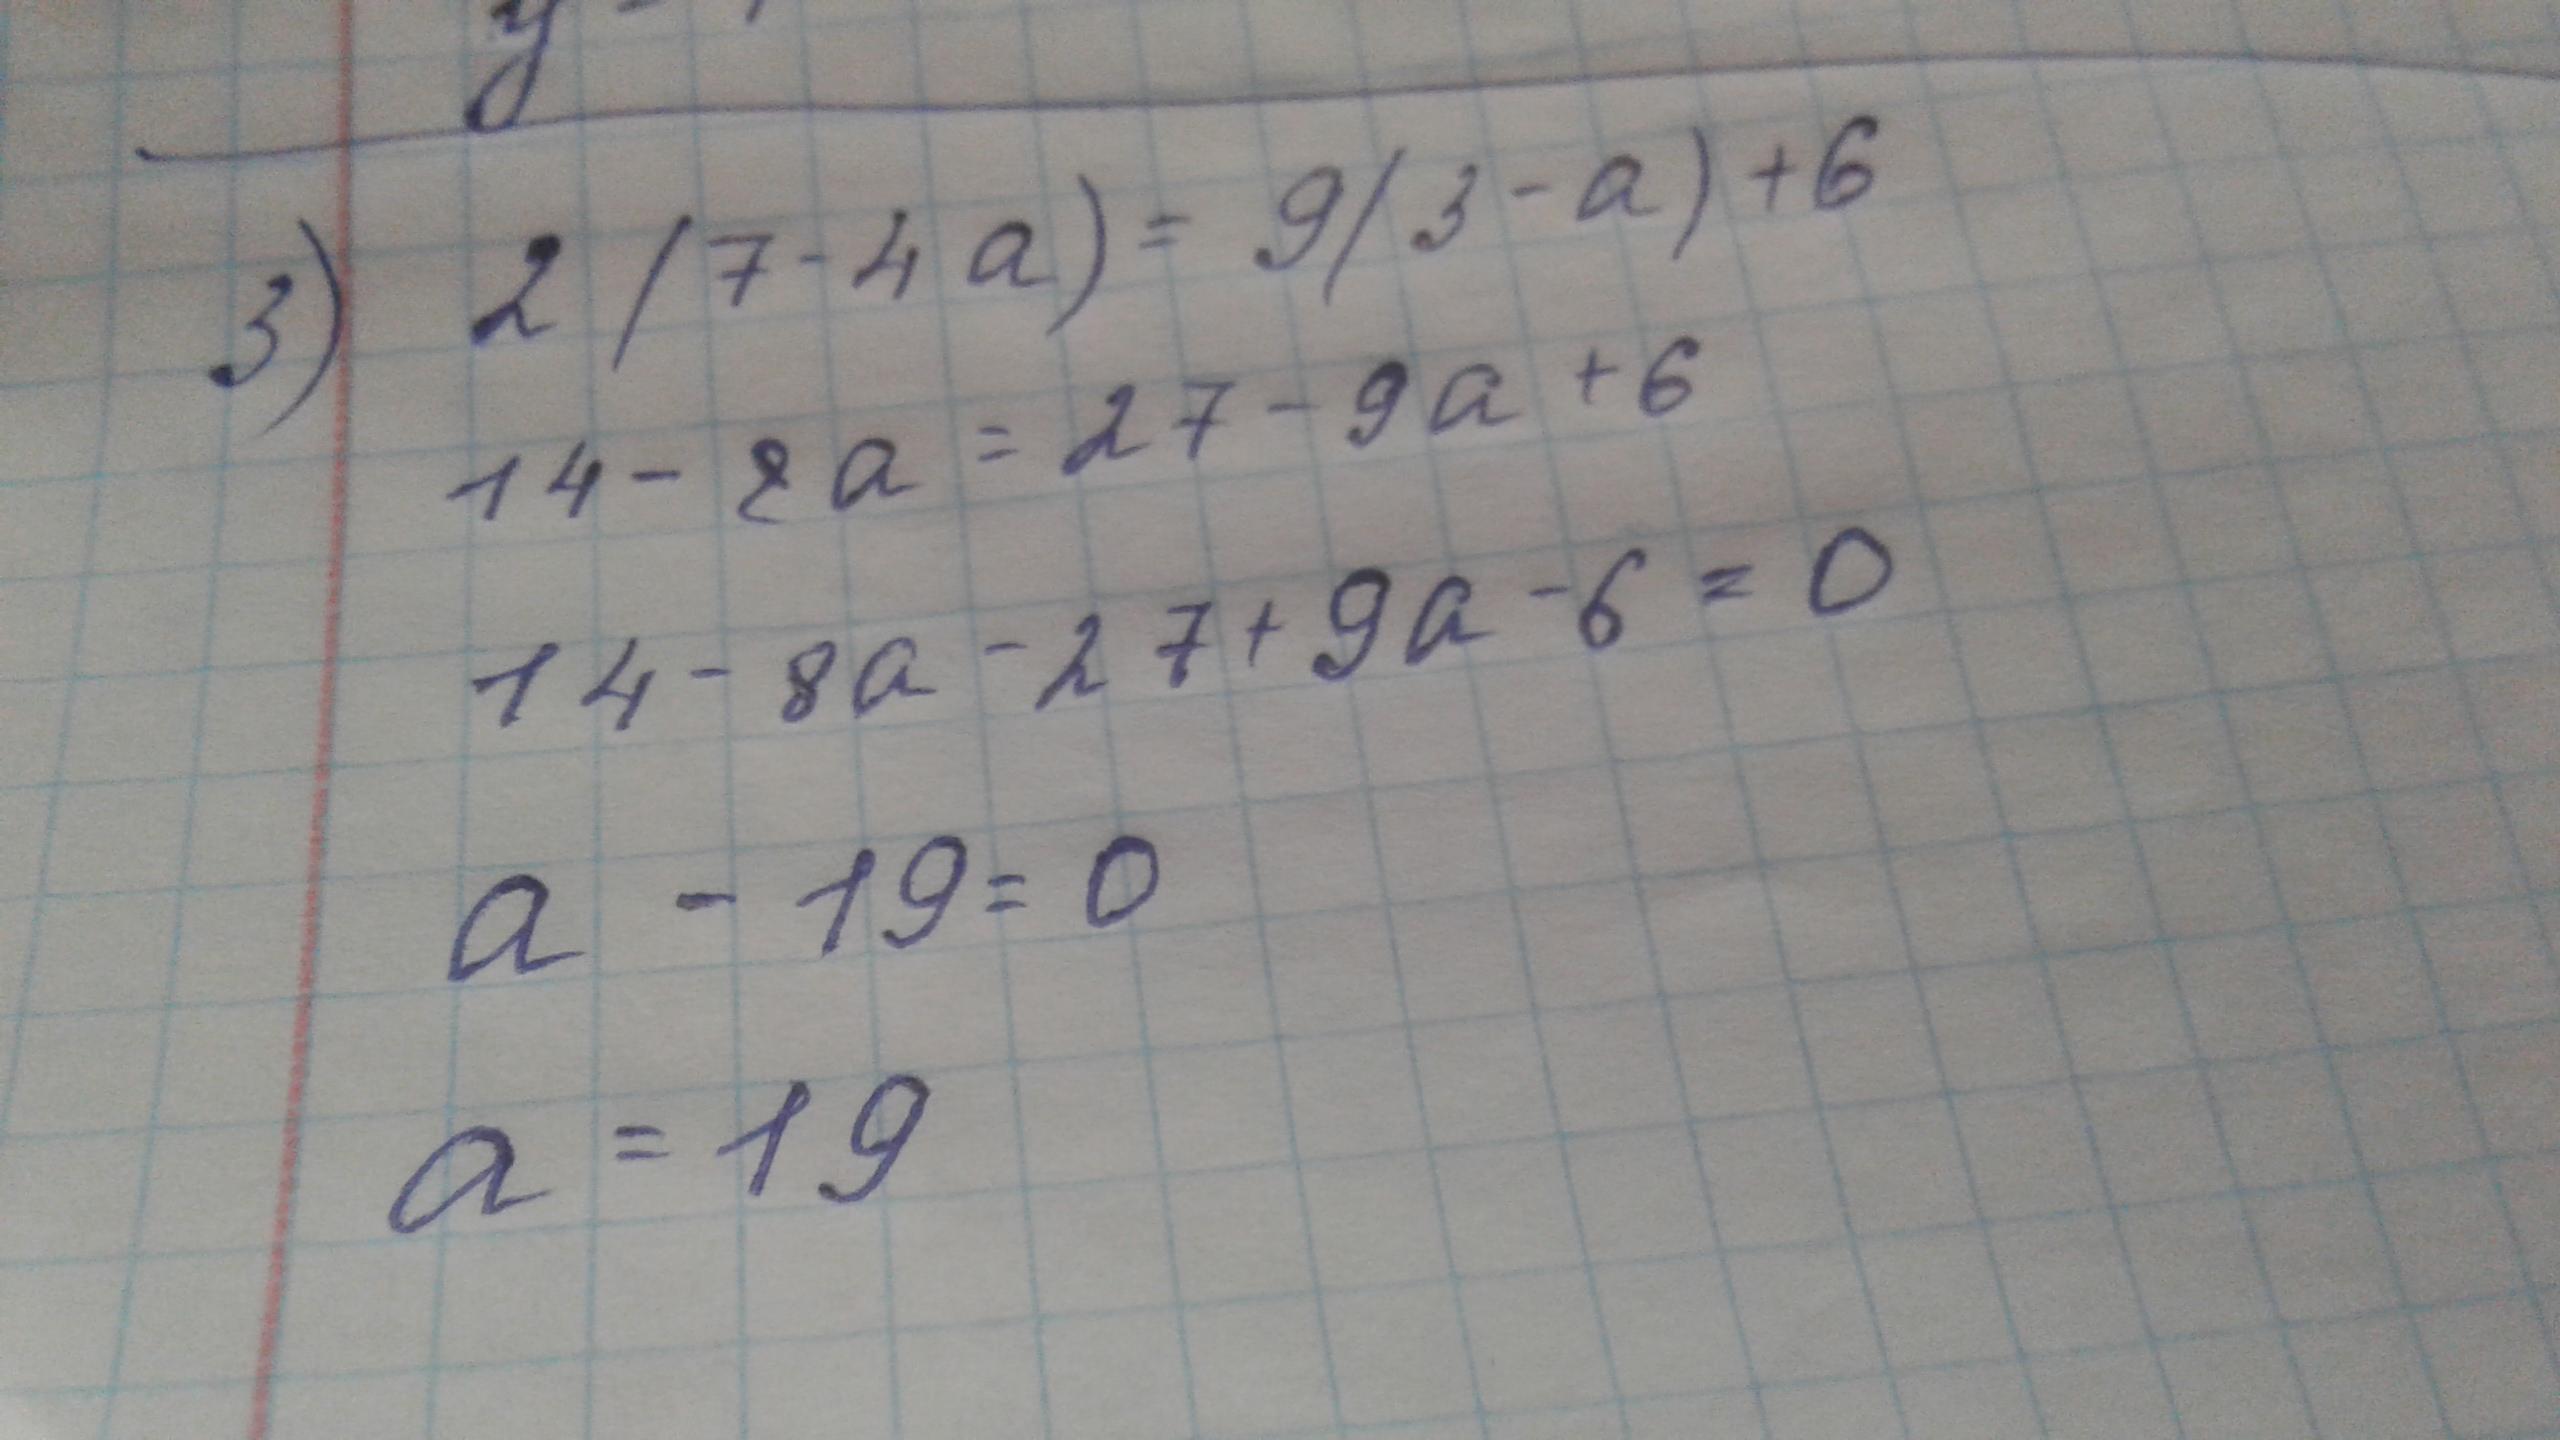 3) 2(7-4a)=9(3-a)+6
14-8a=27-9a+6
14-8a-27+9a-6=0
a-19=0
a=19